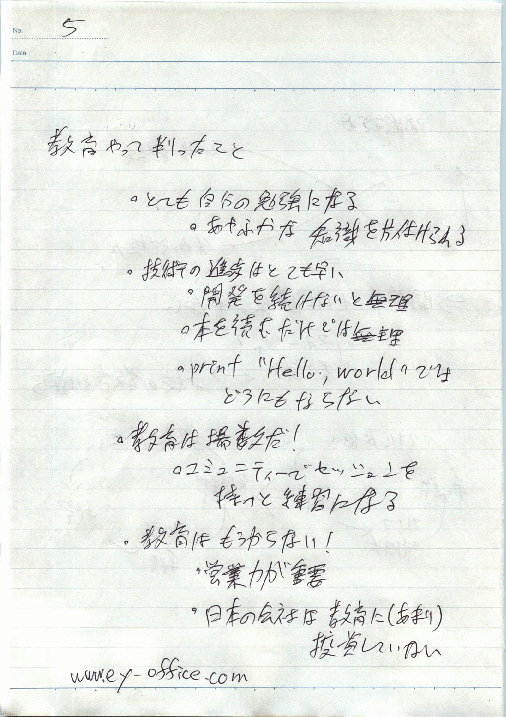 No. 5
Date
教育やって判ったこと
・とても自分の勉強になる
・あやふやな 知識を片付けられる
・技術の進歩はとても早い
・開発を続けないと無理
・本を読むだけでは無理
・print "Hello, world" では
どうにもならない
・教育は場数だ!
・コミュニティーでセッションを
持つと練習になる
・教育はもうからない!
・営業力が重要
・日本の会社は教育に(あまり)
投資していない
www.ey-office.com